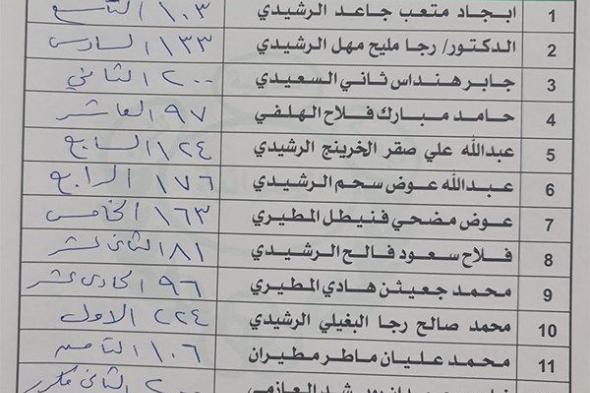 1 ابجاد متعب جاعد الرشيدي ١٠٣ التاسع
2 الدكتور/ رجا مليح مهل الرشيدي ١٣٣ السادس
3 جابر هنداس ثاني السعيدي ٢٠٠ الثاني
4 حامد مبارك فلاح الهلفي ٩٧ العاشر
5 عبدالله علي صقر الخرينج الرشيدي ١٢٤ السابع
6 عبدالله عوض سحم الرشيدي ١٧٦ الرابع
7 عوض مضحي فنيطل المطيري ١٦٣ الخامس
8 فلاح سعود فالح الرشيدي ٨١ الثاني عشر
9 محمد جعيثن هادي المطيري ٩٦ الحادي عشر
10 محمد صالح رجا البغيلي الرشيدي ٢٢٤ الاول
11 محمد عليان ماطر مطيران ١٠٦ الثامن
العازمي ٢٠٠ الثاني مكرر